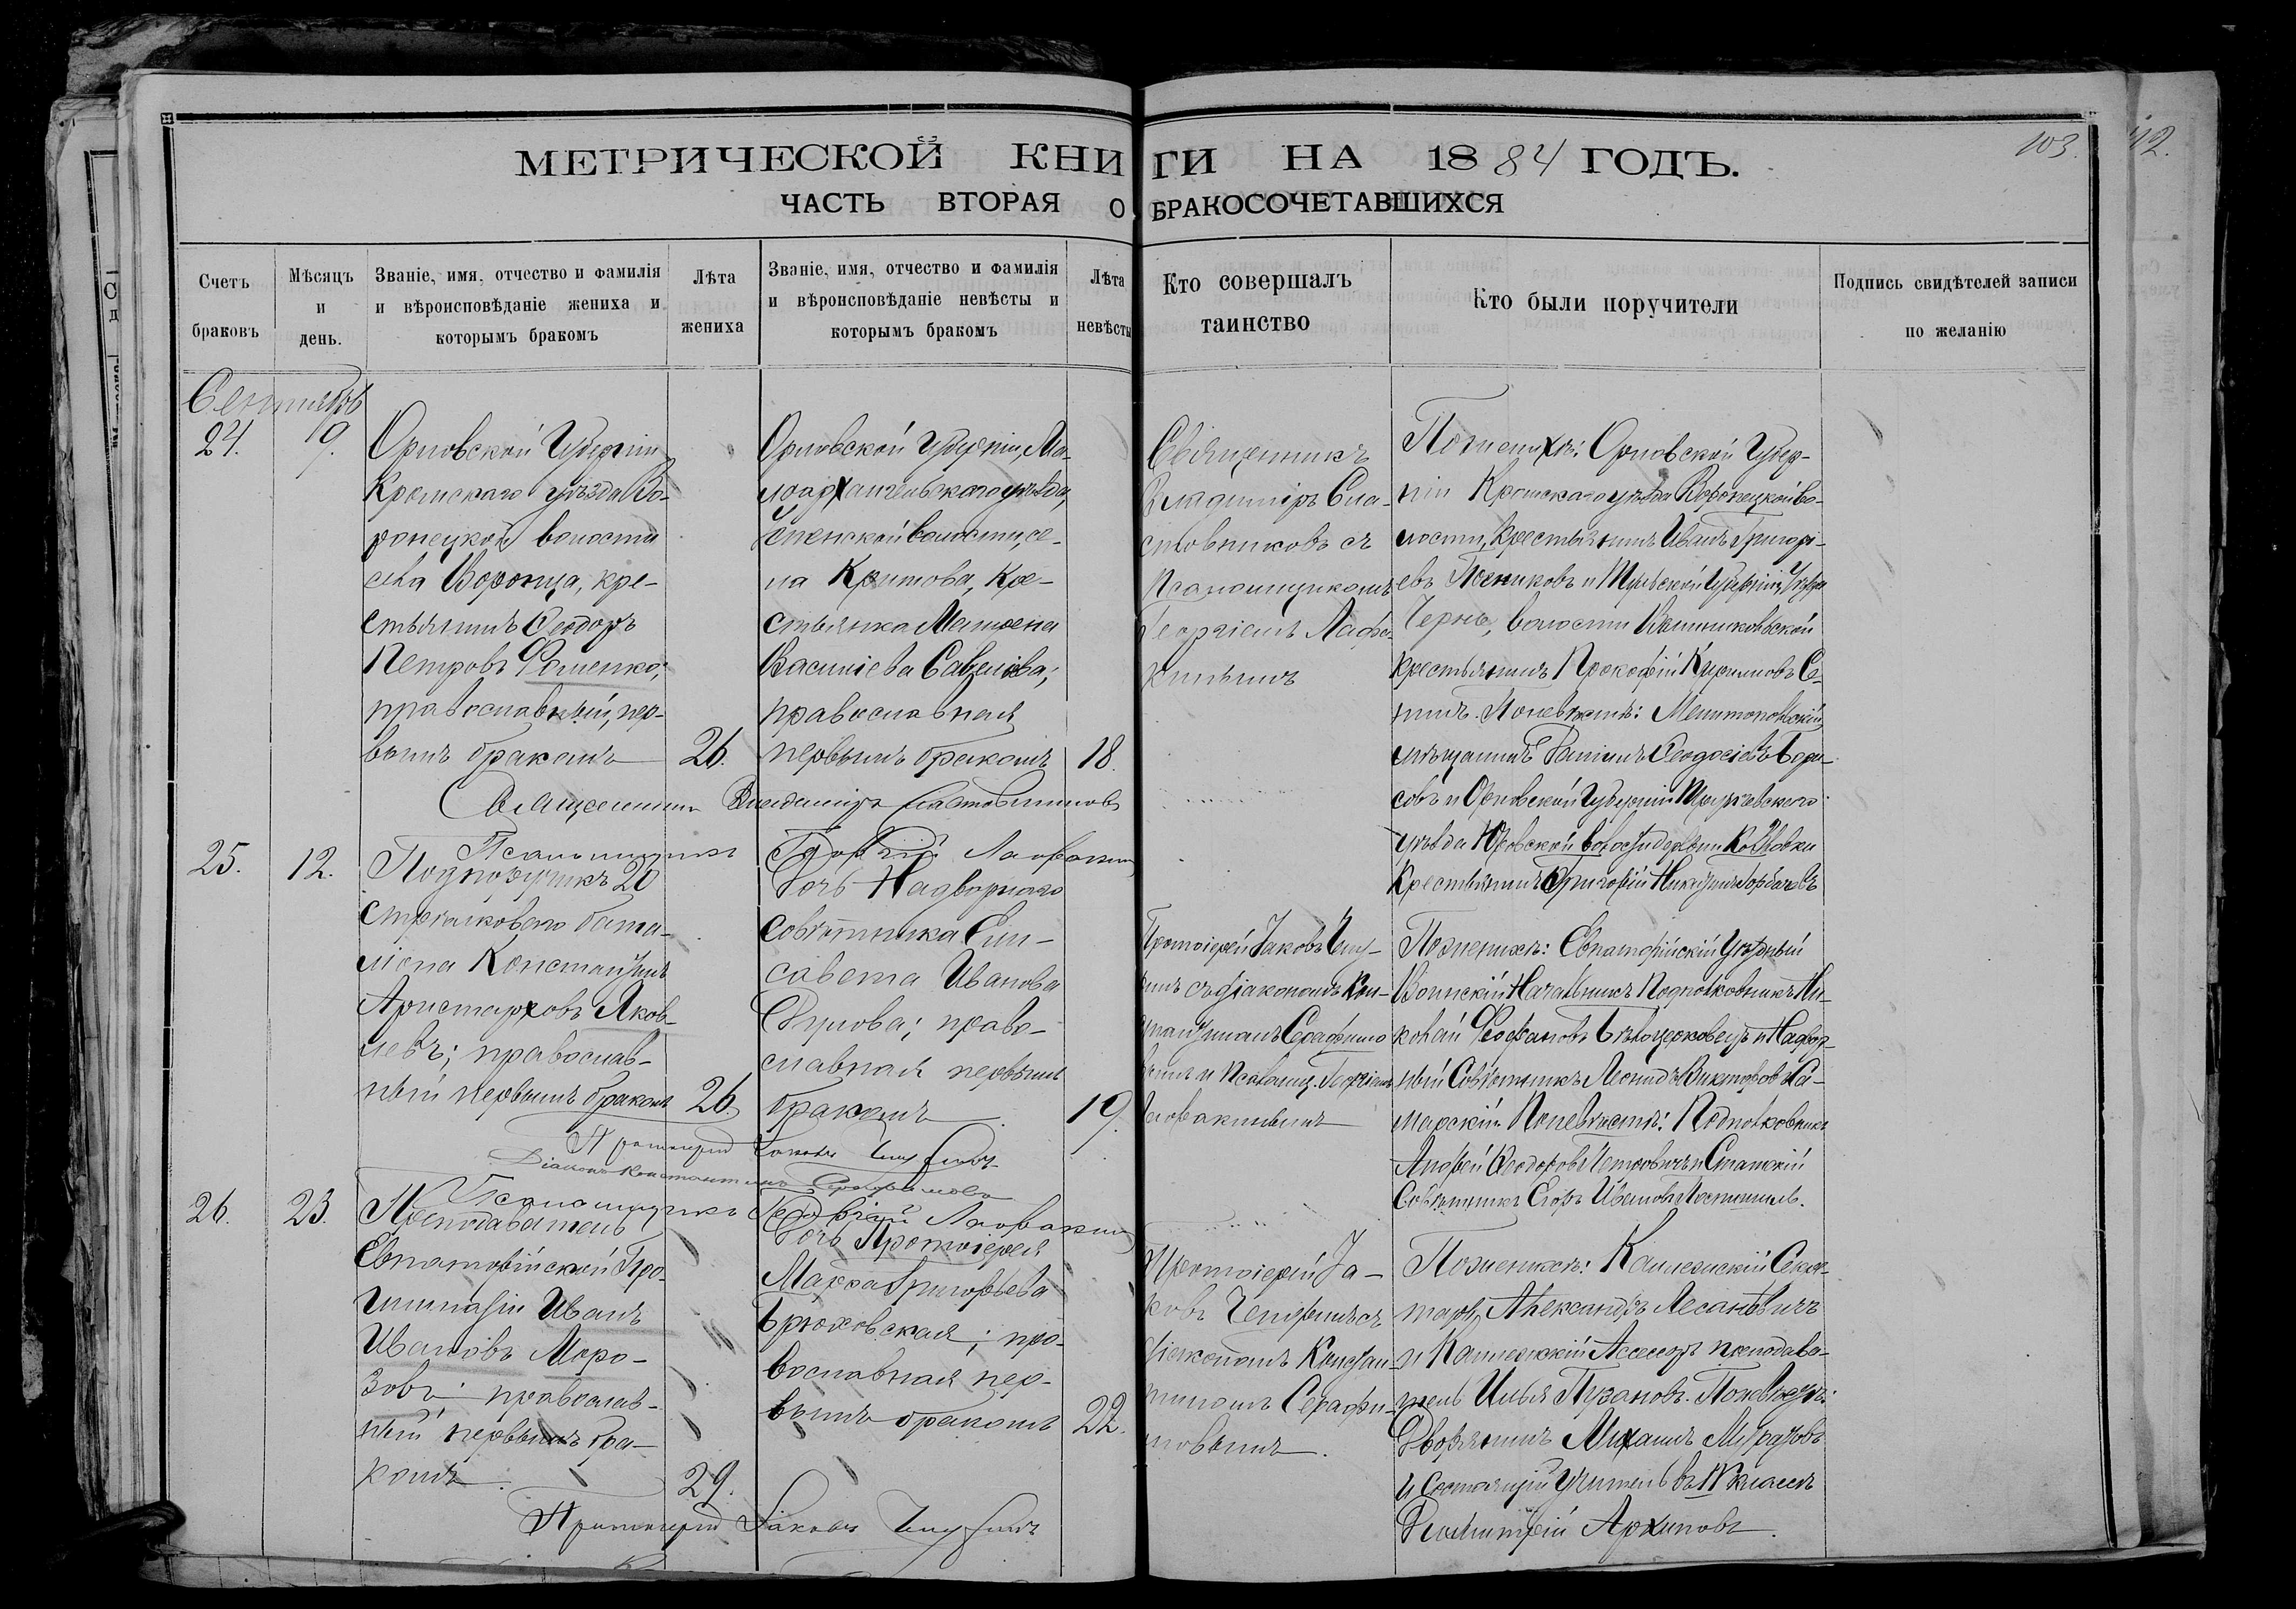 МЕТРИЧЕСКОЙ КНИГИ НА 1884 ГОДЪ.
103.
ЧАСТЬ ВТОРАЯ О БРАКОСОЧЕТАВШИХСЯ
Счетъ
браковъ
Мѣсяцъ
и
день.
Званіе, имя, отчество и фамилія
и вѣроисповѣданіе жениха и
которымъ бракомъ
Лѣта
жениха
Званіе, имя, отчество и фамилія
и вѣроисповѣданіе невѣсты и
которымъ бракомъ
Лѣта
невѣсты
Кто совершалъ
таинство
Кто были поручители
Подпись свидѣтелей записи
по желанію
Сентябрь
24.
9.
Орловской Губерніи
Кромскаго уѣзда Во-
ронецкой волости
села Воронца, кре-
стьянинъ Ѳеодоръ
Петровъ
православный, пер-
вымъ бракомъ
26.
Орловской Губерніи, Ма-
лоархангельскаго уѣзда,
волости, се-
ла Критова, Кре-
стьянка Матрена
Васильева Савелова;
православная
первымъ бракомъ
18.
Священникъ
Владиміръ Сла-
стовниковъ съ
Псаломщикомъ
Георгіемъ Лафа-
кинымъ
По женихѣ: Орловской Губер-
ніи Кромскаго уѣзда Воронецкой во-
лости, Крестьянинъ Иванъ Григорі-
евъ и Тульской Губерніи,
Чернь, волости
Крестьянинъ Прокофій Се-
нинъ. По невѣстѣ: Мелитопольскій
мѣщанинъ Ѳеодосіевъ Бори-
совъ и Орловской Губерніи Трубчевскаго
уѣзда Юровской волости деревни
Крестьянинъ Григорій
Священникъ Владиміръ Сластовниковъ
Псаломщикъ Георгій Лафакинъ
25.
12.
Подпоручикъ 20
Стрѣлковаго бата-
ліона Константинъ
Аристарховъ Яков-
левъ; православ-
ный первымъ бракомъ
26.
Дочь Надворнаго
Совѣтника Ели-
савета Иванова
право-
славная первымъ
бракомъ
19.
Протоіерей Іаковъ Чепу-
ринъ съ діакономъ Кон-
стантиномъ Серафимо-
вымъ и Псаломщ. Георгіемъ
Лафакинымъ
По женихѣ: Евпаторійскій Уѣздный
Воинскій Начальникъ Подполковникъ Ни-
колай Ѳеофановъ Бѣлоцерковецъ и Надвор-
ный Совѣтникъ Леонидъ Викторовъ Са-
марскій. По невѣстѣ: Подполковникъ
Андрей Ѳеодоровъ Петровичъ и Статскій
Совѣтникъ Егоръ Ивановъ
Протоіерей Іаковъ Чепуринъ
Діаконъ Константинъ Серафимовъ
Псаломщикъ Георгій Лафакинъ
26.
23.
Преподаватель
Евпаторійской Про-
гимназіи Иванъ
Ивановъ Моро-
зовъ; православ-
ный первымъ бра-
комъ
29.
Дочь Протоіерея
Макра Григорьева
Брюховская; пра-
вославная пер-
вымъ бракомъ
22.
Протоіерей Іа-
ковъ Чепуринъ съ
діакономъ Констан-
тиномъ Серафи-
мовымъ.
По женихѣ: Коллежскій Секре-
тарь, Александръ Лесановичъ
и Коллежскій Ассесоръ преподава-
тель Илья Пузановъ. По невѣстѣ:
Дворянинъ Михаилъ Мурзовъ
и Состоящій учитель въ IV классѣ
Димитрій Архиповъ.
Протоіерей Іаковъ Чепуринъ